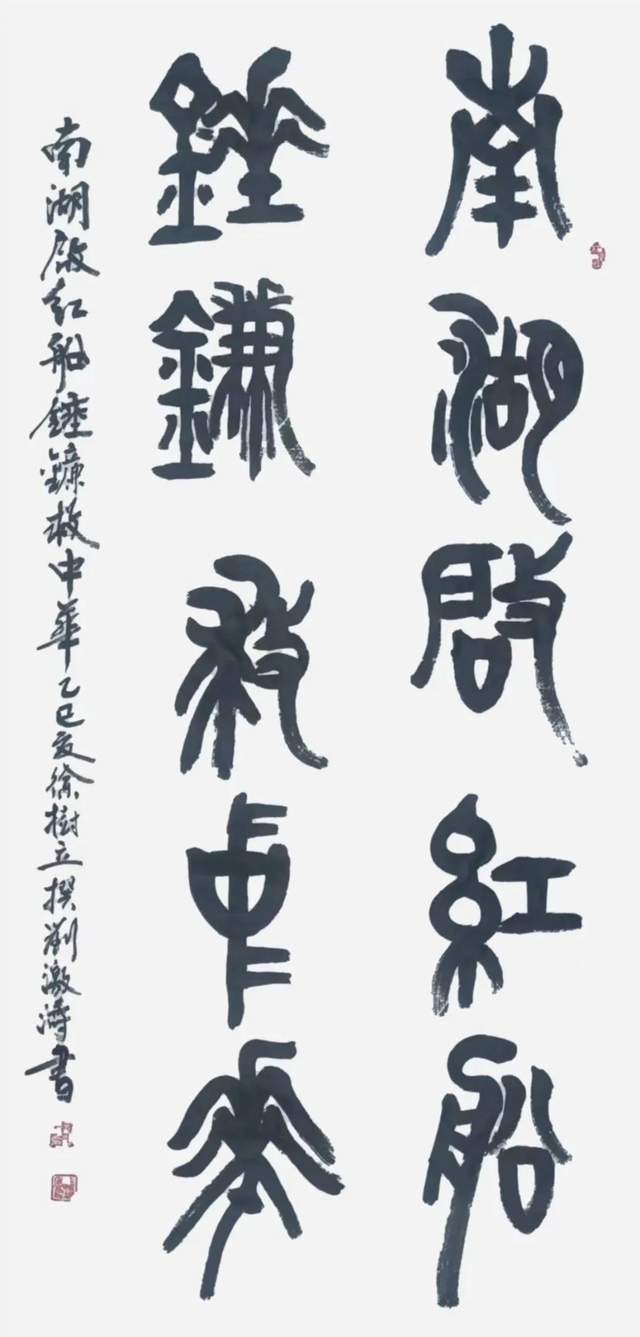 南湖啟紅船
錘鎌救中華
南湖啟红船錘鐮救中華乙巳夏徐樹立撰劉激濤書